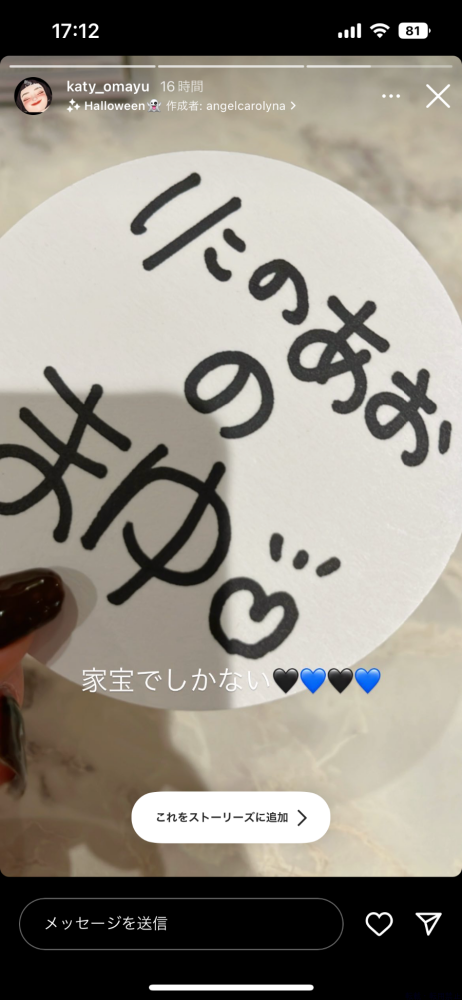 17:12
81
katy_omayu 16時間
Halloween👻 作成者: angelcarolyna
りにのあお
の
まゆ
家宝でしかない🖤💙🖤💙
これをストーリーズに追加
メッセージを送信